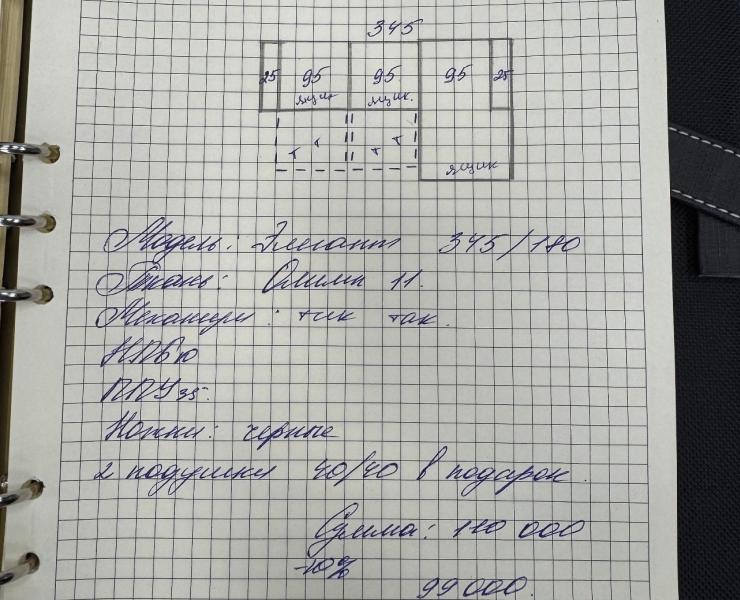 345
25 95 95 95 25
ящик ящик.
т т т т
ящик
Модель: Элегант 345/180
Ткань: Олимп 11.
Механизм: тик так.
НПБю
ППУ 35.
Ножки: черные
2 подушки 40/40 в подарок.
Сумма: 110 000
-10%
99 000.